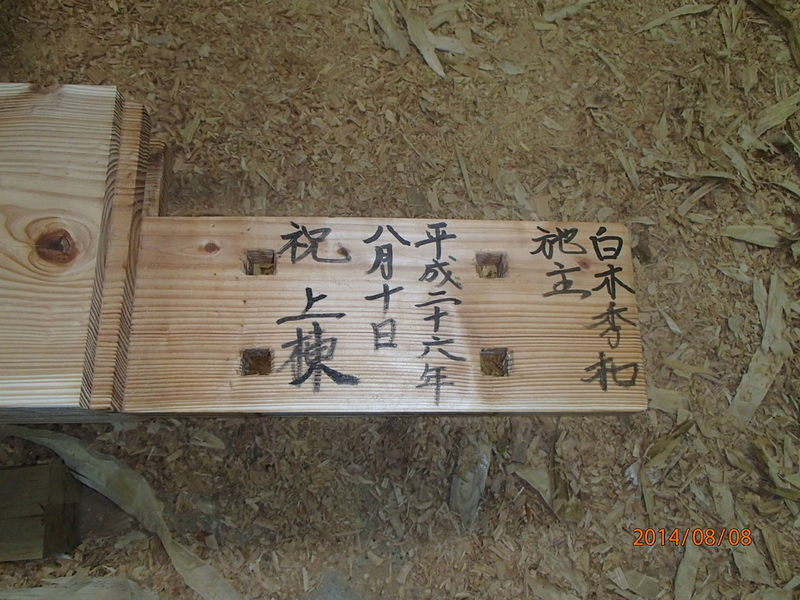 白木秀和
祂主
平成二十六年
八月十日
祝 上棟
2014/08/08